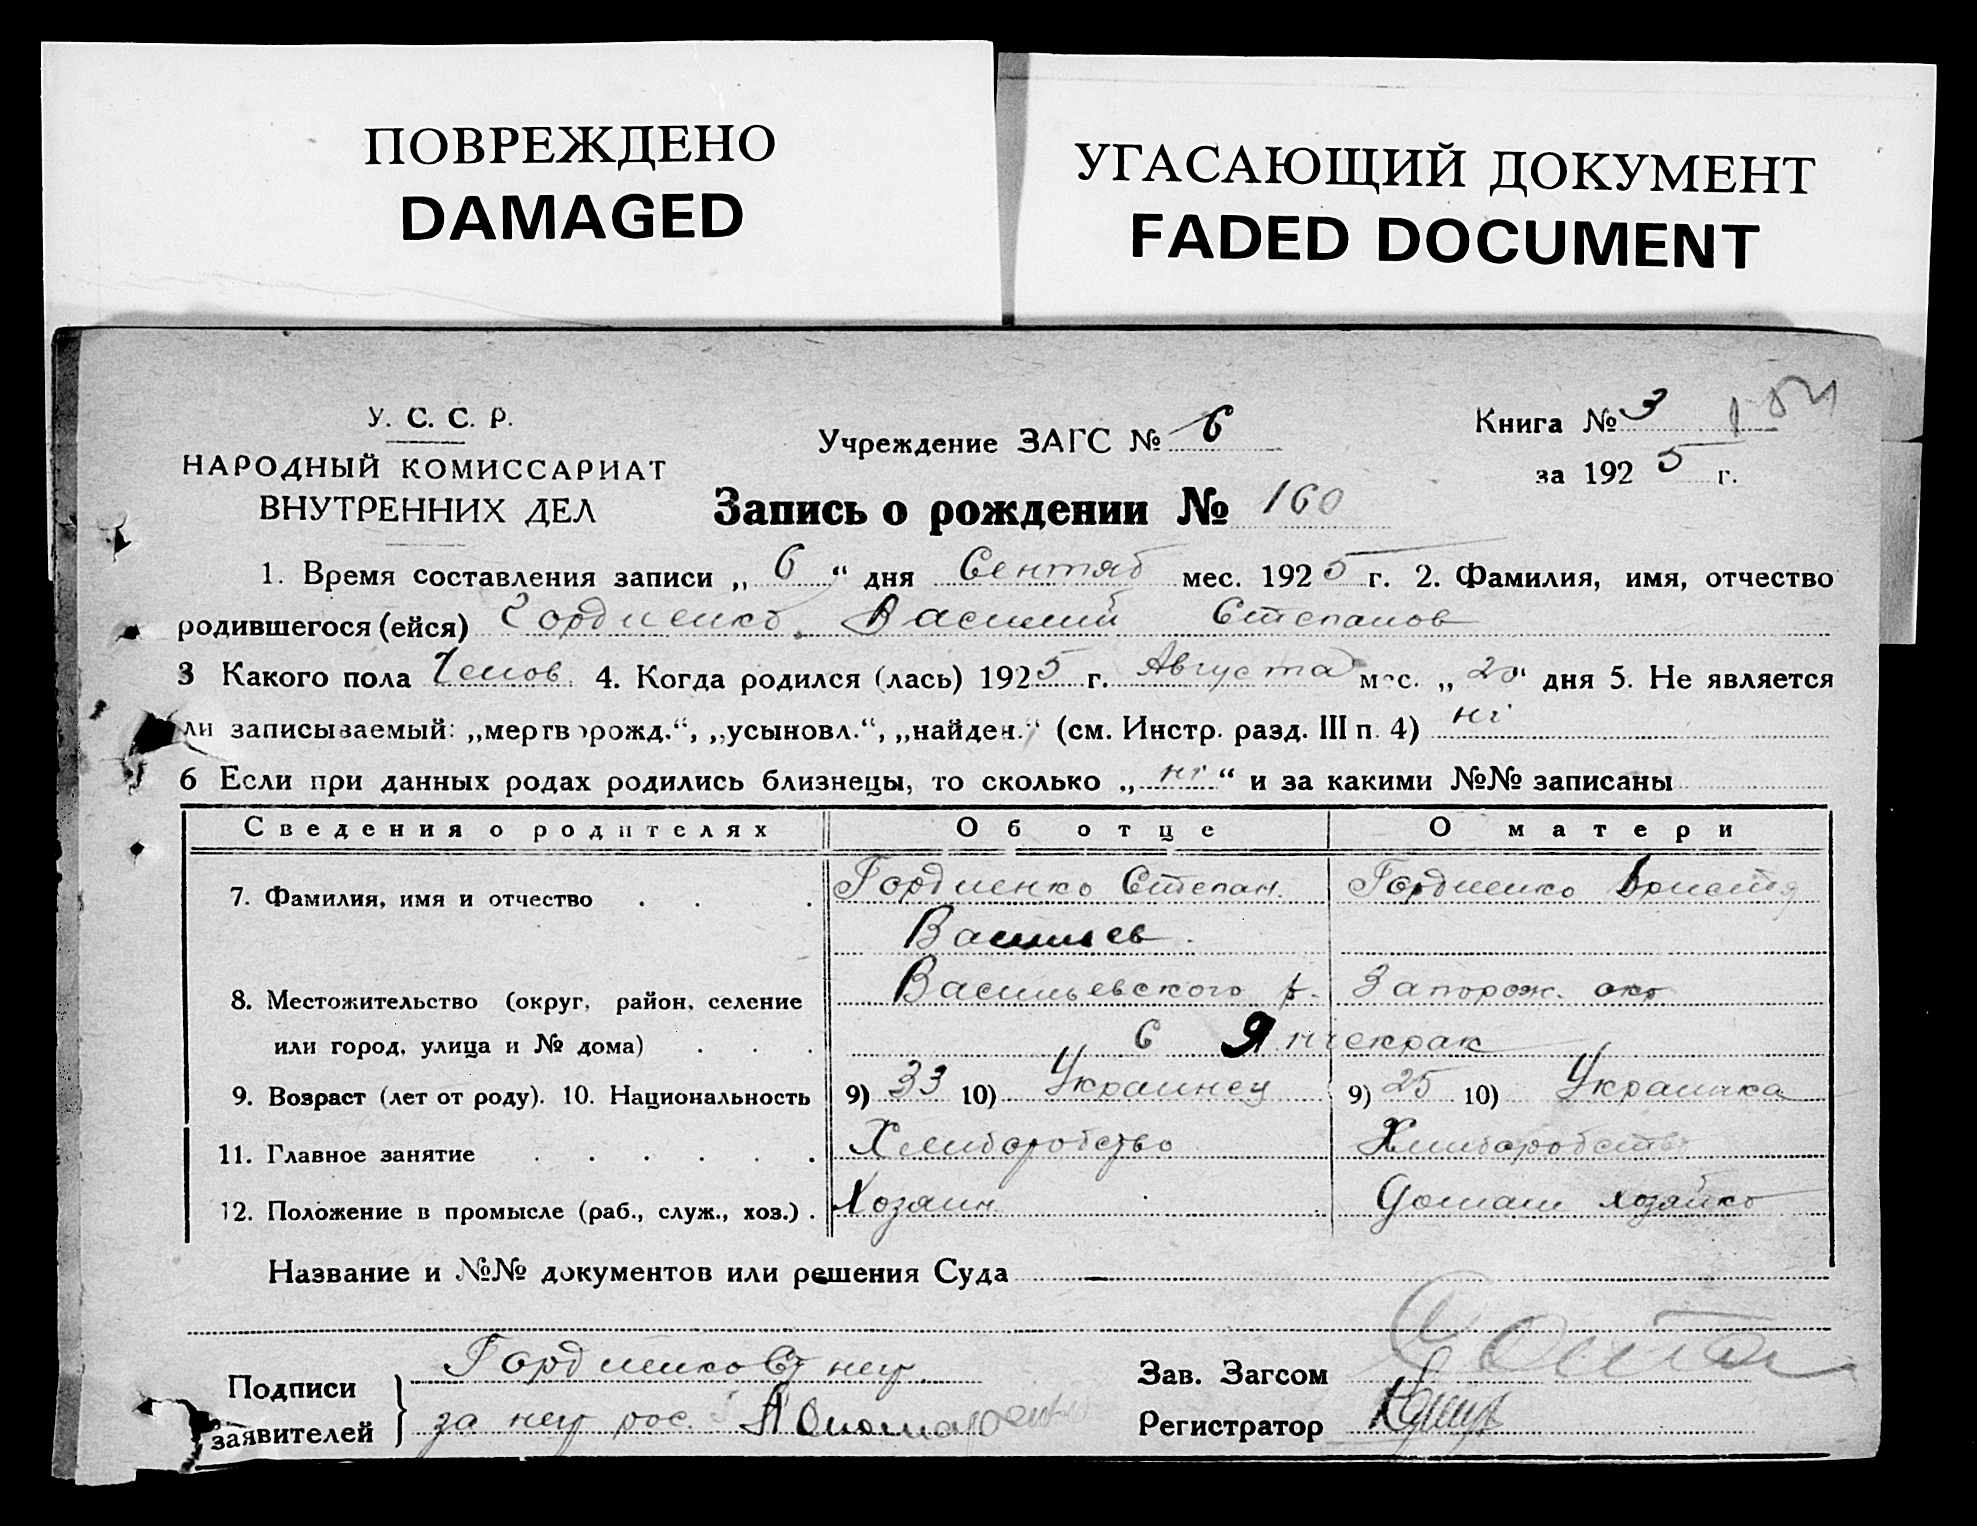 ПОВРЕЖДЕНО
DAMAGED
УГАСАЮЩИЙ ДОКУМЕНТ
FADED DOCUMENT
У. С. С. Р.
НАРОДНЫЙ КОМИССАРИАТ
ВНУТРЕННИХ ДЕЛ
Учреждение ЗАГС № 6
Книга № 3
за 1925 г.
Запись о рождении № 160
1. Время составления записи „ 6 “ дня Сентяб мес. 1925 г. 2. Фамилия, имя, отчество
родившегося (ейся) Гордиенко Василий Степанов
3 Какого пола 4. Когда родился (лась) 1925 г. Августа мес. „ “ дня 5. Не является
ли записываемый: „мертворожд.“, „усыновл.“, „найден.“ (см. Инстр. разд. III п. 4) ні
6 Если при данных родах родились близнецы, то сколько „ ні “ и за какими №№ записаны
Сведения о родителях Об отце О матери
7. Фамилия, имя и отчество Гордиенко Степан. Гордиенко
Васильев
8. Местожительство (округ, район, селение Васильевского р. Запорож. окр
или город, улица и № дома) С Янчекрак
9. Возраст (лет от роду). 10. Национальность 9) 33 10) Украинец 9) 25 10) Украинка
11. Главное занятие Хлиборобство Хлиборобств
12. Положение в промысле (раб., служ., хоз.) Хозяин Домаш хозяйко
Название и №№ документов или решения Суда —
Подписи заявителей Гордиенко Ст неу
за неу рос.
Зав. Загсом
Регистратор